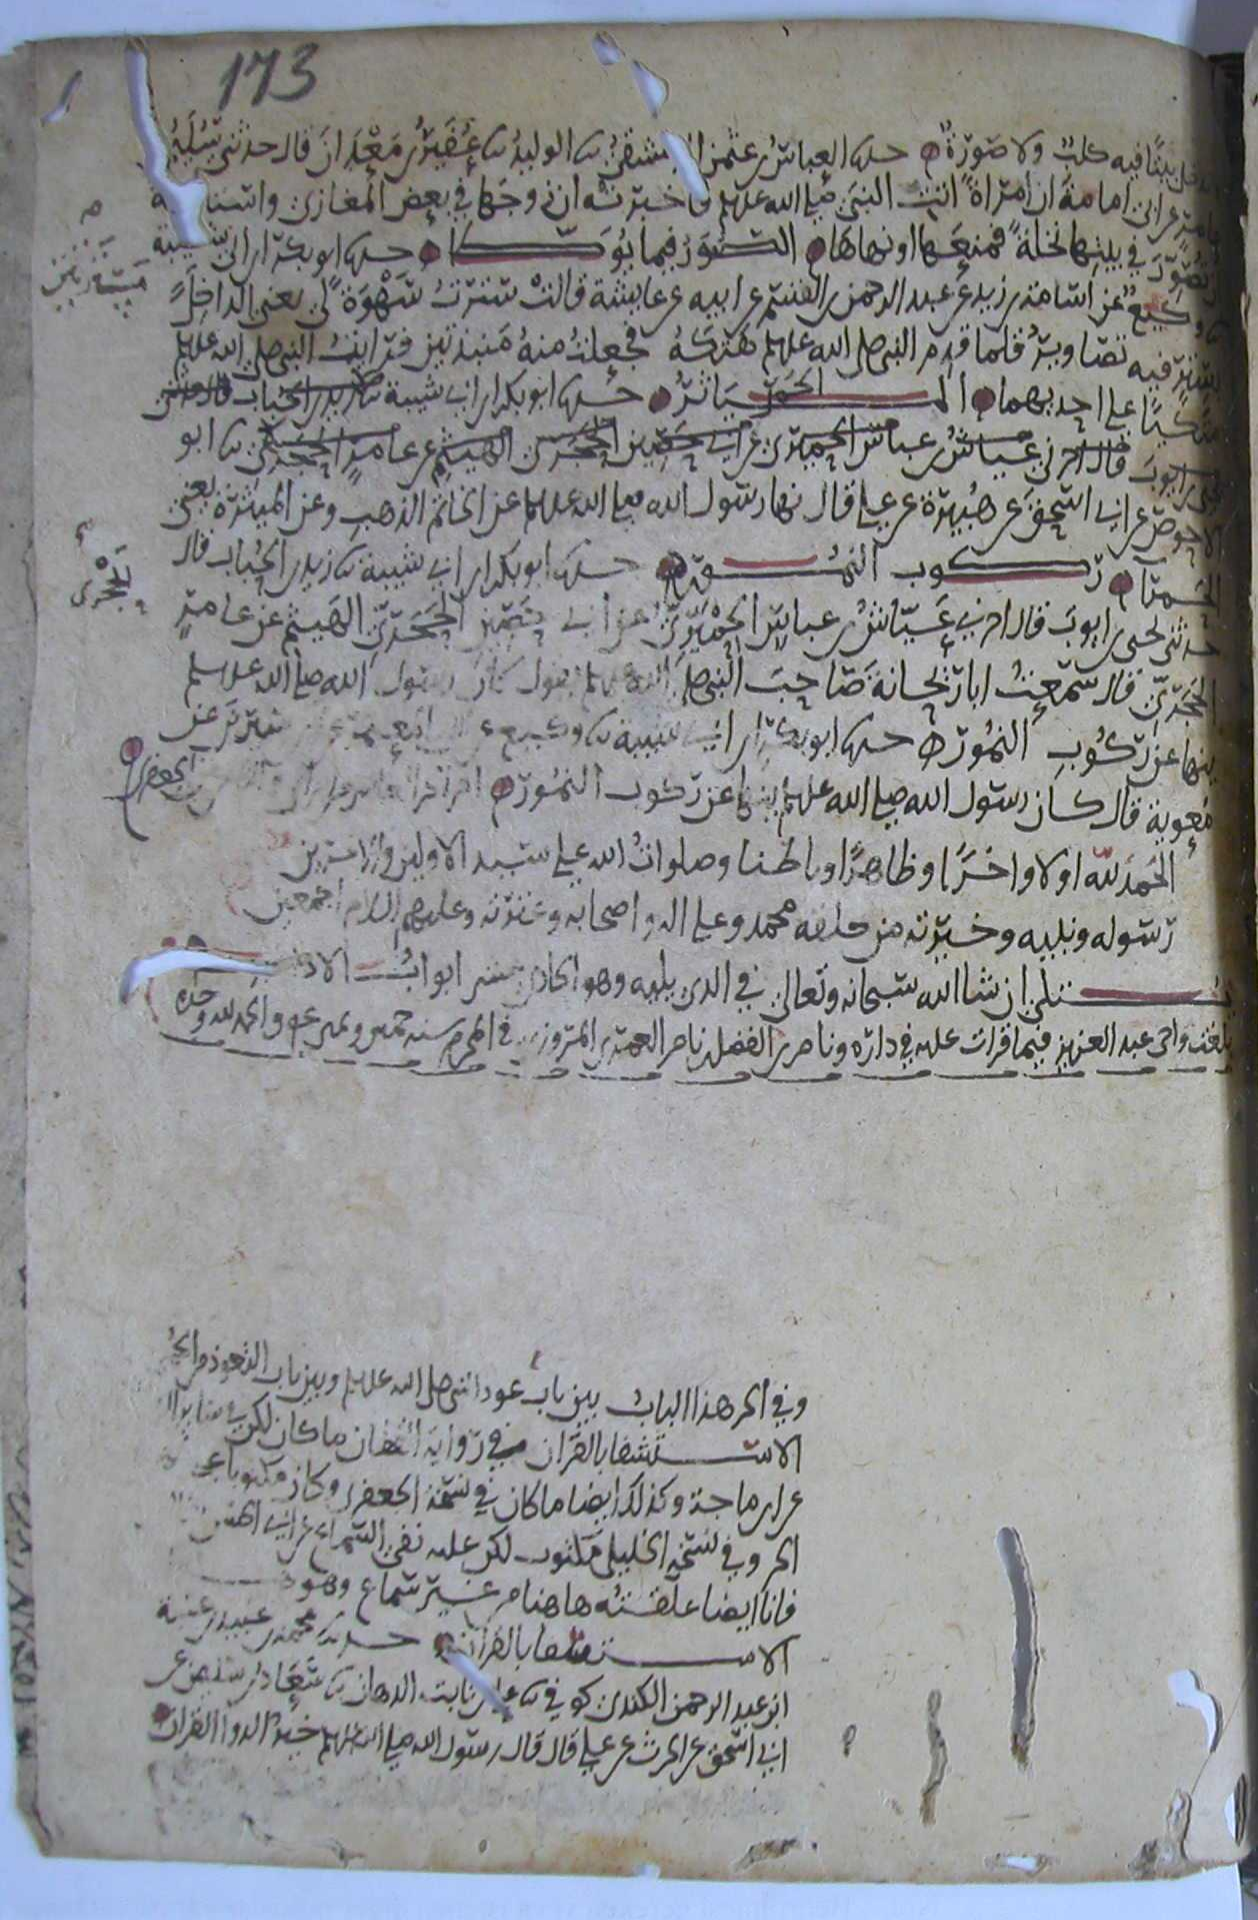 173
بيتا فيه كلب ولا صورة حدثنا العباس بن عثمن الدمشقي نا الوليد نا عفير بن معدان قال حدثني سليم
بن عامر عن ابي امامة ان امراة اتت النبي صلى الله عليه وسلم فاخبرته ان زوجها في بعض المغازي واستاذنته
ان تصور في بيتها نخلة فمنعها او نهاها الصور فيما يوطا حدثنا ابو بكر بن ابي شيبة
نا وكيع عن اسامة بن زيد عن عبد الرحمن بن القسم عن ابيه عن عايشة قالت سترت سهوة لي يعني الداخل
بستر فيه تصاوير فلما قدم النبي صلى الله عليه وسلم هتكه فجعلت منه منبذتين فرايت النبي صلى الله عليه وسلم
متكيا على احديهما المياثر الحمر حدثنا ابو بكر بن ابي شيبة نا زيد بن الحباب قال حدثني
يحيى بن ايوب قال اخبرني عياش بن عباس الحميري عن ابي حصين الحجري الهيثم عن عامر الحجري نا ابو
الاحوص عن ابي اسحق عن هبيرة عن علي قال نهى رسول الله صلى الله عليه وسلم عن خاتم الذهب وعن الميثرة يعني
الحمرا ركوب النمور حدثنا ابو بكر بن ابي شيبة نا زيد بن الحباب قال
حدثني يحيى بن ايوب قال اخبرني عياش بن عباس الحميري عن ابي حصين الحجري الهيثم عن عامر
الحجري قال سمعت ابا ريحانة صاحب النبي صلى الله عليه وسلم يقول كان رسول الله صلى الله عليه وسلم
ينها عن ركوب النمور حدثنا ابو بكر بن ابي شيبة نا وكيع عن ابي المعتمر عن ابن سيرين عن
معوية قال كان رسول الله صلى الله عليه وسلم ينها عن ركوب النمور
الجعفري
الحمد لله اولا واخرا وظاهرا وباطنا وصلوات الله على سيد الاولين والاخرين
رسوله ونبيه وخيرته من خلقه محمد وعلى اله واصحابه وعترته وعليهم السلام اجمعين
يتلى ان شا الله سبحانه وتعالى في الذي يليه وهو الحادي عشر ابواب الادب
بلغت واخي عبد العزيز فيما قرات عليه في داره وناصر بن الفضل بن ناصر المروزي في المحرم سنة خمس والحمد لله وحده
وفي اخر هذا الباب بين باب عوذ النبي صلى الله عليه وسلم وبين باب التعوذ من الحمى
الاستشفا بالقران في رواية القطان ما كان لكن
عن ابن ماجة وكذلك ايضا ما كان في نسخة الجعفري وكان مكتوبا على
اخر وفي نسخة الخليلي مكتوب لكن عليه نفي السماع عن ابي الحسن
فانا ايضا علقته هاهنا من غير سماع وهو
الاستشفا بالقران حدثنا محمد بن عبيد بن عتبة
ابن عبد الرحمن الكندي كوفي نا علي بن ثابت الدهان نا سعاد بن سليمن عن
ابي اسحق عن الحرث عن علي قال قال رسول الله صلى الله عليه وسلم خير الدوا القران